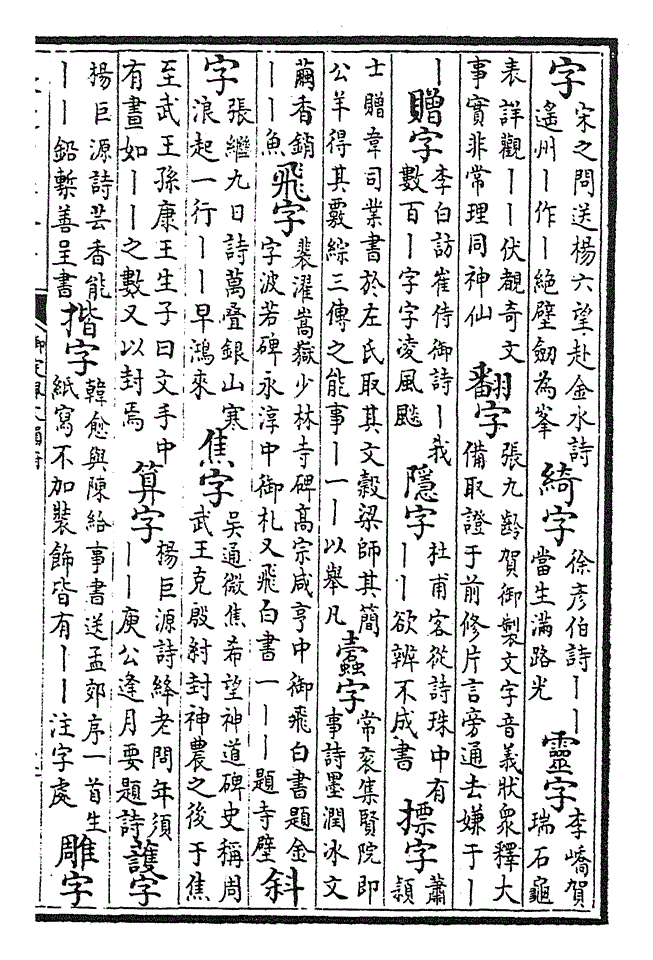 字
宋之問送楊六望赴金水詩
遙州丨作丨絕壁劒為峯
綺字
徐彥伯詩丨丨
當生滿路光
靈字
李嶠賀
瑞石龜
表詳觀丨丨伏覩奇文
事實非常理同神仙
翻字
張九齡賀御製文字音義狀衆釋大
備取證于前修片言旁通去嫌于丨
丨
贈字
李白訪崔侍御詩丨我
數百丨字字凌風飈
隱字
杜甫客從詩珠中有
丨丨欲辨不成書
摽字
蕭
頴
士贈韋司業書於左氏取其文穀梁師其簡
公羊得其覈綜三傳之能事丨一丨以舉凡
蠹字
常衮集賢院即
事詩墨潤冰文
繭香銷
丨丨魚
飛字
裴漼嵩嶽少林寺碑高宗咸亨中御飛白書題金
字波若碑永淳中御札又飛白書一丨丨題寺壁
斜
字
張繼九日詩萬疊銀山寒
浪起一行丨丨早鴻來
焦字
吳通微焦希望神道碑史稱周
武王克殷紂封神農之後于焦
至武王孫康王生子曰文手中
有畫如丨丨之數又以封焉
算字
楊巨源詩絳老問年須
丨丨庾公逢月要題詩
護字
楊巨源詩芸香能
丨丨鉛槧善呈書
揩字
韓愈與陳給事書送孟郊序一首生
紙寫不加裝飾皆有丨丨注字處
雕字